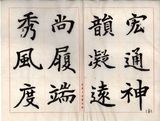 宏通神
韻凝遠
尚履端
秀風度